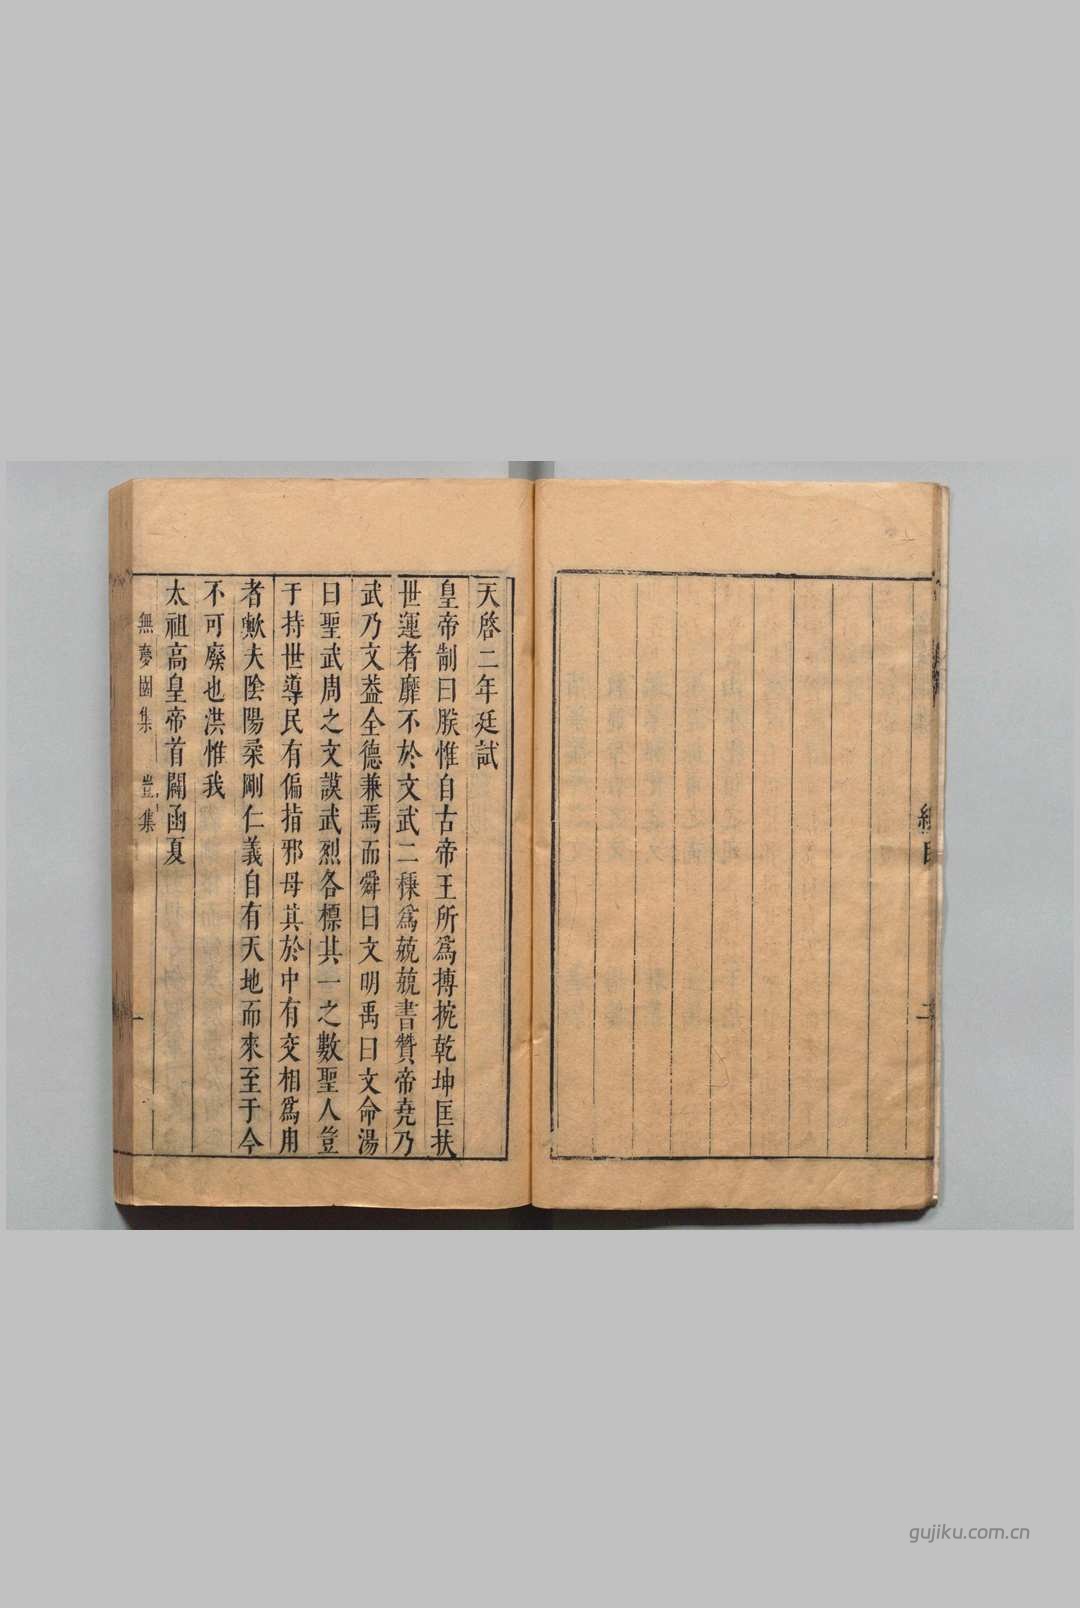 二
天啓二年廷試
皇帝制曰朕惟自古帝王所爲摶捖乾坤匡扶
世運者靡不於文武二䅽爲兢兢書贊帝堯乃
武乃文葢全德兼焉而舜曰文明禹曰文命湯
曰聖武周之文謨武烈各標其一之數聖人豈
于持世導民有偏指邪毋其於中有交相爲用
者歟夫陰陽柔剛仁義自有天地而來至于今
不可廢也洪惟我
太祖高皇帝首闢函夏
無夢園集 豈集 一
gujiku.com.cn